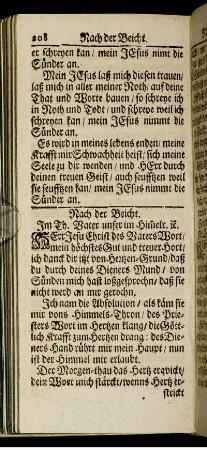 208 Nach der Beicht.
er schreyen kan / mein JEsus nimt die
Sünder an.
Mein JEsus laß mich diesen trauen /
laß mich in aller meiner Noth / auf deine
That und Worte bauen / so schreye ich
in Noth und Todt / und schreye weil ich
schreyen kan / mein JEsus nimmt die
Sünder an.
Es wird in meines lebens enden / meine
Krafft mir Schwachheit heist / sich meine
Seele zu dir wenden / und HErr durch
deinen treuen Geist / auch seufftzen weil
sie seufftzen kan / mein JEsus nimmt die
Sünder an.
Nach der Beicht.
Im Th. Vater unser im Himelr. ꝛc.
HErr JEsu Christ des Vaters Wort /
mein höchstes Gut und treuer Hort /
ich danck dir itzt von Hertzen-Grund / daß
du durch deines Dieners Mund / von
Sünden mich hast loßgesprochn / daß sie
nicht werd an mir gerochn.
Ich nam die Absolution / als käm sie
mir vons Himmels-Thron / des Prie-
sters Wort im Hertzen klang / die Gött-
lich Krafft zum Hertzen drang: des Die-
ners Hand rührt mir mein Haupt / nun
ist der Himmel mir erlaubt.
Der Morgen-thau das Hertz erqvickt /
dein Wort mich stärckt / wenns Hertz er-
strickt